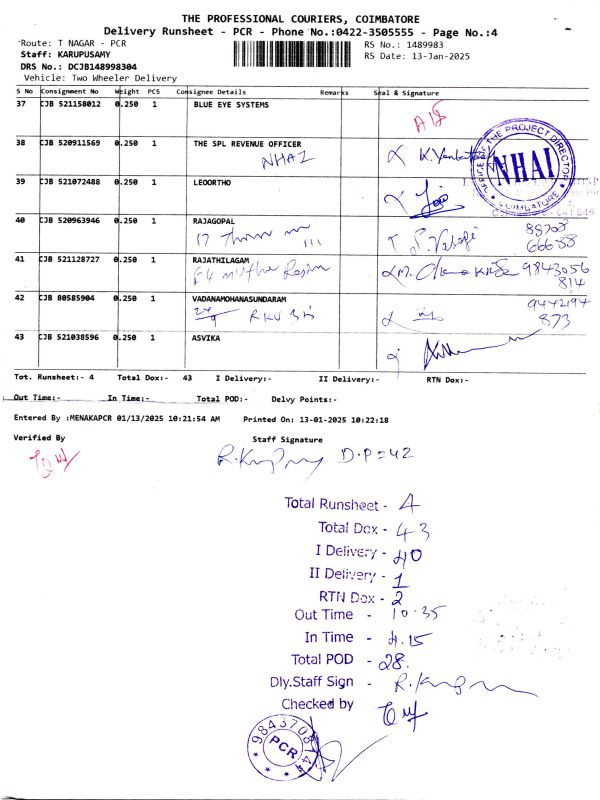 THE PROFESSIONAL COURIERS, COIMBATORE
Delivery Runsheet - PCR - Phone No.:0422-3505555 - Page No.:4
Route: T NAGAR - PCR
RS No.: 1489983
Staff: KARUPUSAMY
RS Date: 13-Jan-2025
DRS No.: DCJB148998304
Vehicle: Two Wheeler Delivery
S No Consignment No Weight PCS Consignee Details Remarks Seal & Signature
37 CJB 521158012 0.250 1 BLUE EYE SYSTEMS
38 CJB 520911569 0.250 1 THE SPL REVENUE OFFICER
NHAI
OFFICE OF THE PROJECT DIRECTOR
NHAI
COIMBATORE
39 CJB 521072488 0.250 1 LEOORTHO
40 CJB 520963946 0.250 1 RAJAGOPAL
88708
66688
41 CJB 521128727 0.250 1 RAJATHILAGAM
9843056
814
42 CJB 80585904 0.250 1 VADANAMOHANASUNDARAM
9442194
873
43 CJB 521038596 0.250 1 ASVIKA
Tot. Runsheet:- 4 Total Dox:- 43 I Delivery:- II Delivery:- RTN Dox:-
Out Time:- In Time:- Total POD:- Delvy Points:-
Entered By :MENAKAPCR 01/13/2025 10:21:54 AM Printed On: 13-01-2025 10:22:18
Verified By Staff Signature
D.P=42
Total Runsheet - 4
Total Dox - 43
I Delivery - 40
II Delivery - 1
RTN Dox - 2
Out Time - 10.35
In Time - 4.15
Total POD - 28.
Dly.Staff Sign -
Checked by
PCR